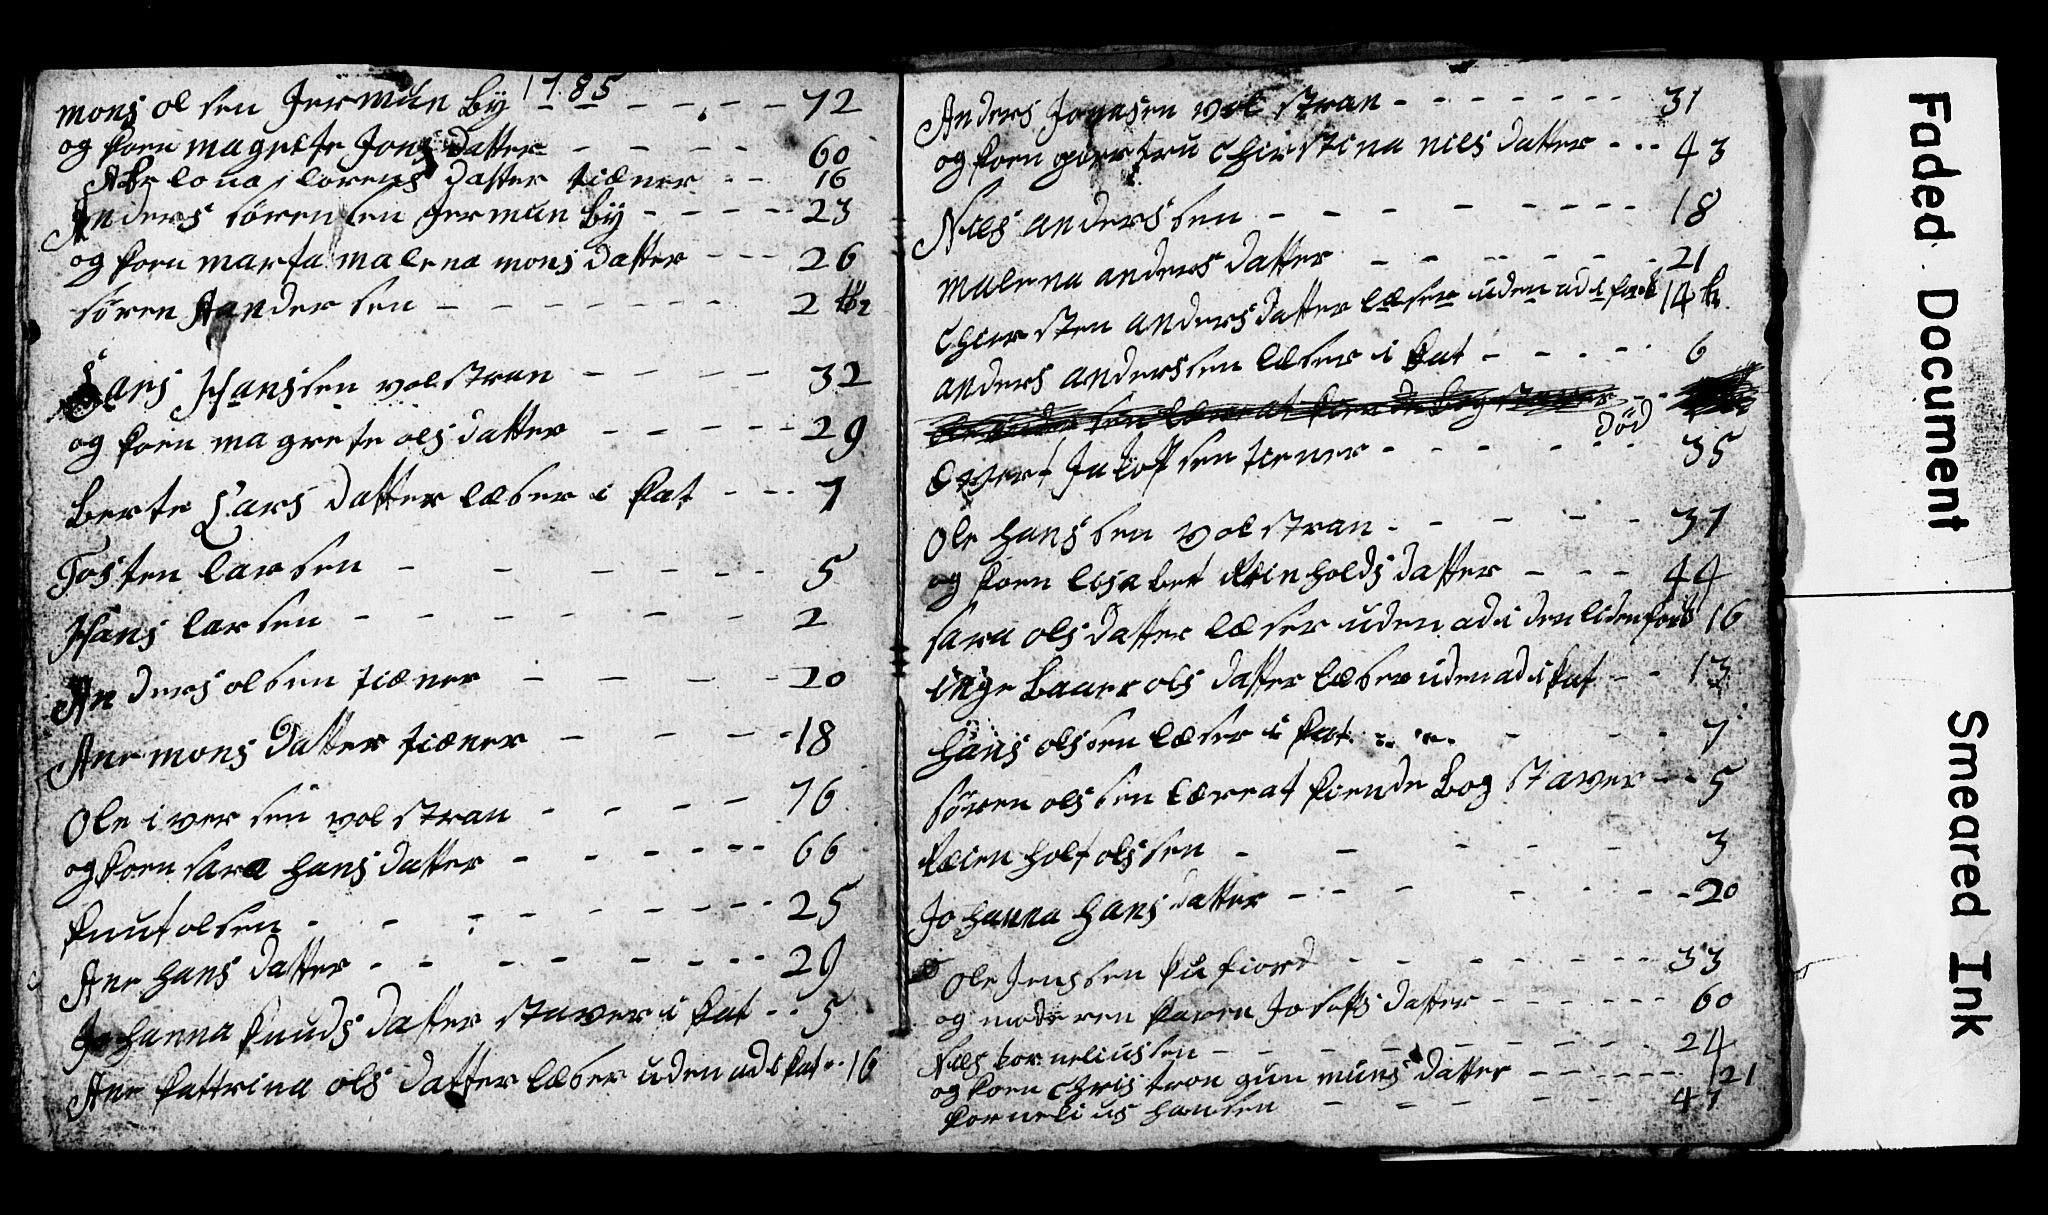 1785
mons olsen Jermun by - - - - - 72
og koen magrete Jons datter - - - - 60
Abelona lorens datter tiæner - - 16
Anders sörensen Jermun by - - - - 23
og koen marta malena mons datter - - - 26
sören Aandersen - - - - - - - 2
Lars Hanssen volstran - - - - - 32
og koen magrete ols datter - - - - - 29
berte Lars datter læser i kat - - - 7
Tosten larsen - - - - - - - 5
Hans larsen - - - - - - 2
Anders olsen tiæner - - - - 20
Ane mons datter tiæner - - - - 18
Ole iversen volstran - - - - 76
og koen sara hans datter - - - - - - 66
knut olsen - - - - - - - - - 25
Ane hans datter - - - - - - - - 29
Johanna knuds datter staver i kat - - 5
Ane kattrina ols datter læser uden ad i kat - - 16
Anders Jonasen volstran - - - - - - - 31
og koen giertru chirstina niels datter - - - 43
Niels anderssen - - - - - - - - 18
malena anders datter - - - - - - 21
chiersten anders datter læser uden ad i 14
anders anderssen læser i kat - - - - - 6
død
Evert Jakopsen tiener - - - - - - 35
Ole hanssen volstran - - - - - 37
og koen lisabet Reinholds datter - - - 44
sara ols datter læser uden ad i den liden 16
inge baaer ols datter læser uden ad i kat - - 13
hans olssen læser i kat - - - 7
sören olssen lærer at kiende bogstaver - - 5
Reinholt olssen - - - - - 3
Johanna hans datter - - - - - - - 20
Ole Jenssen kufiord - - - - - - - 33
og moderen karen Josefs datter - - - - - - 60
Niels korneliussen - - - - - - - 24
og koen christron gunmuns datter - - - - - - 21
kornelius hansen - - - - - - 47
Faded Document
Smeared Ink